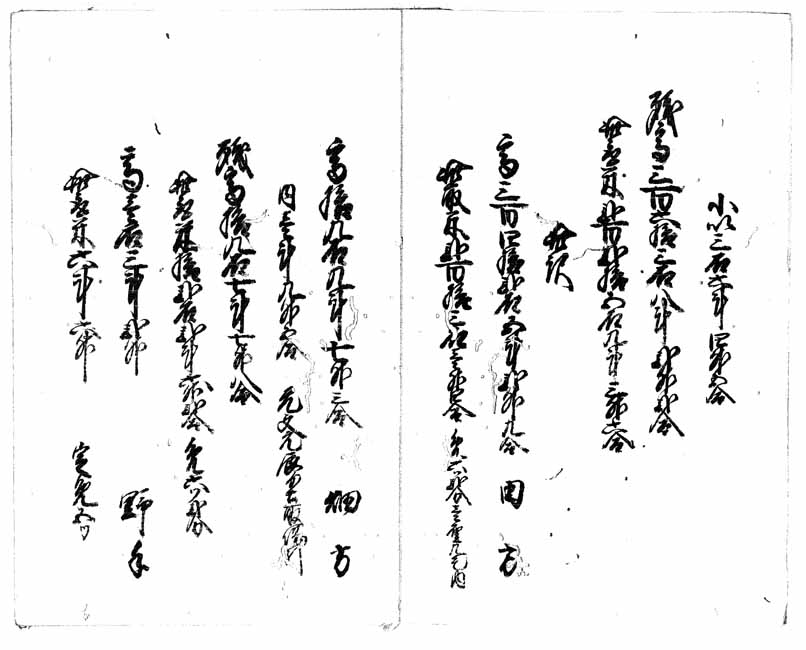 小以三石六斗四升五合
残高三百六拾三石八斗弐升弐合
此取米弐百弐拾五石九斗三升六合
此訳
高三百四拾弐石 斗弐升 合 田方
此取米弐百拾三石 合 免六ツ弐分 厘 毛内
高拾九石九斗七升三合 畑方
内壱斗九升五合 引
残高拾九石七斗七升八合
此取米拾弐石弐斗六升弐合 免六ツ弐分
高壱石三斗弐升 野手
此取米六斗六升 定免五ツ